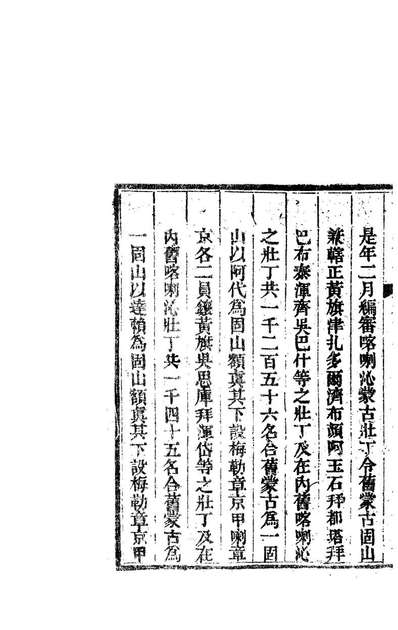 是年二月編審喀喇沁蒙古壯丁令舊蒙古固山
兼轄正黃旗津扎多爾濟布顏阿玉石拜都塔拜
巴布泰渾齊吳巴什等之壯丁及在內舊喀喇沁
之壯丁共一千二百五十六名合舊蒙古爲一固
山以阿代為固山額真其下設梅勒章京甲喇章
京各二員鑲黃旗吳思庫拜渾岱等之壯丁及在
內舊喀喇沁壯丁共一千四十五名合舊蒙古為
一固山以達賴為固山額真其下設梅勒章京甲